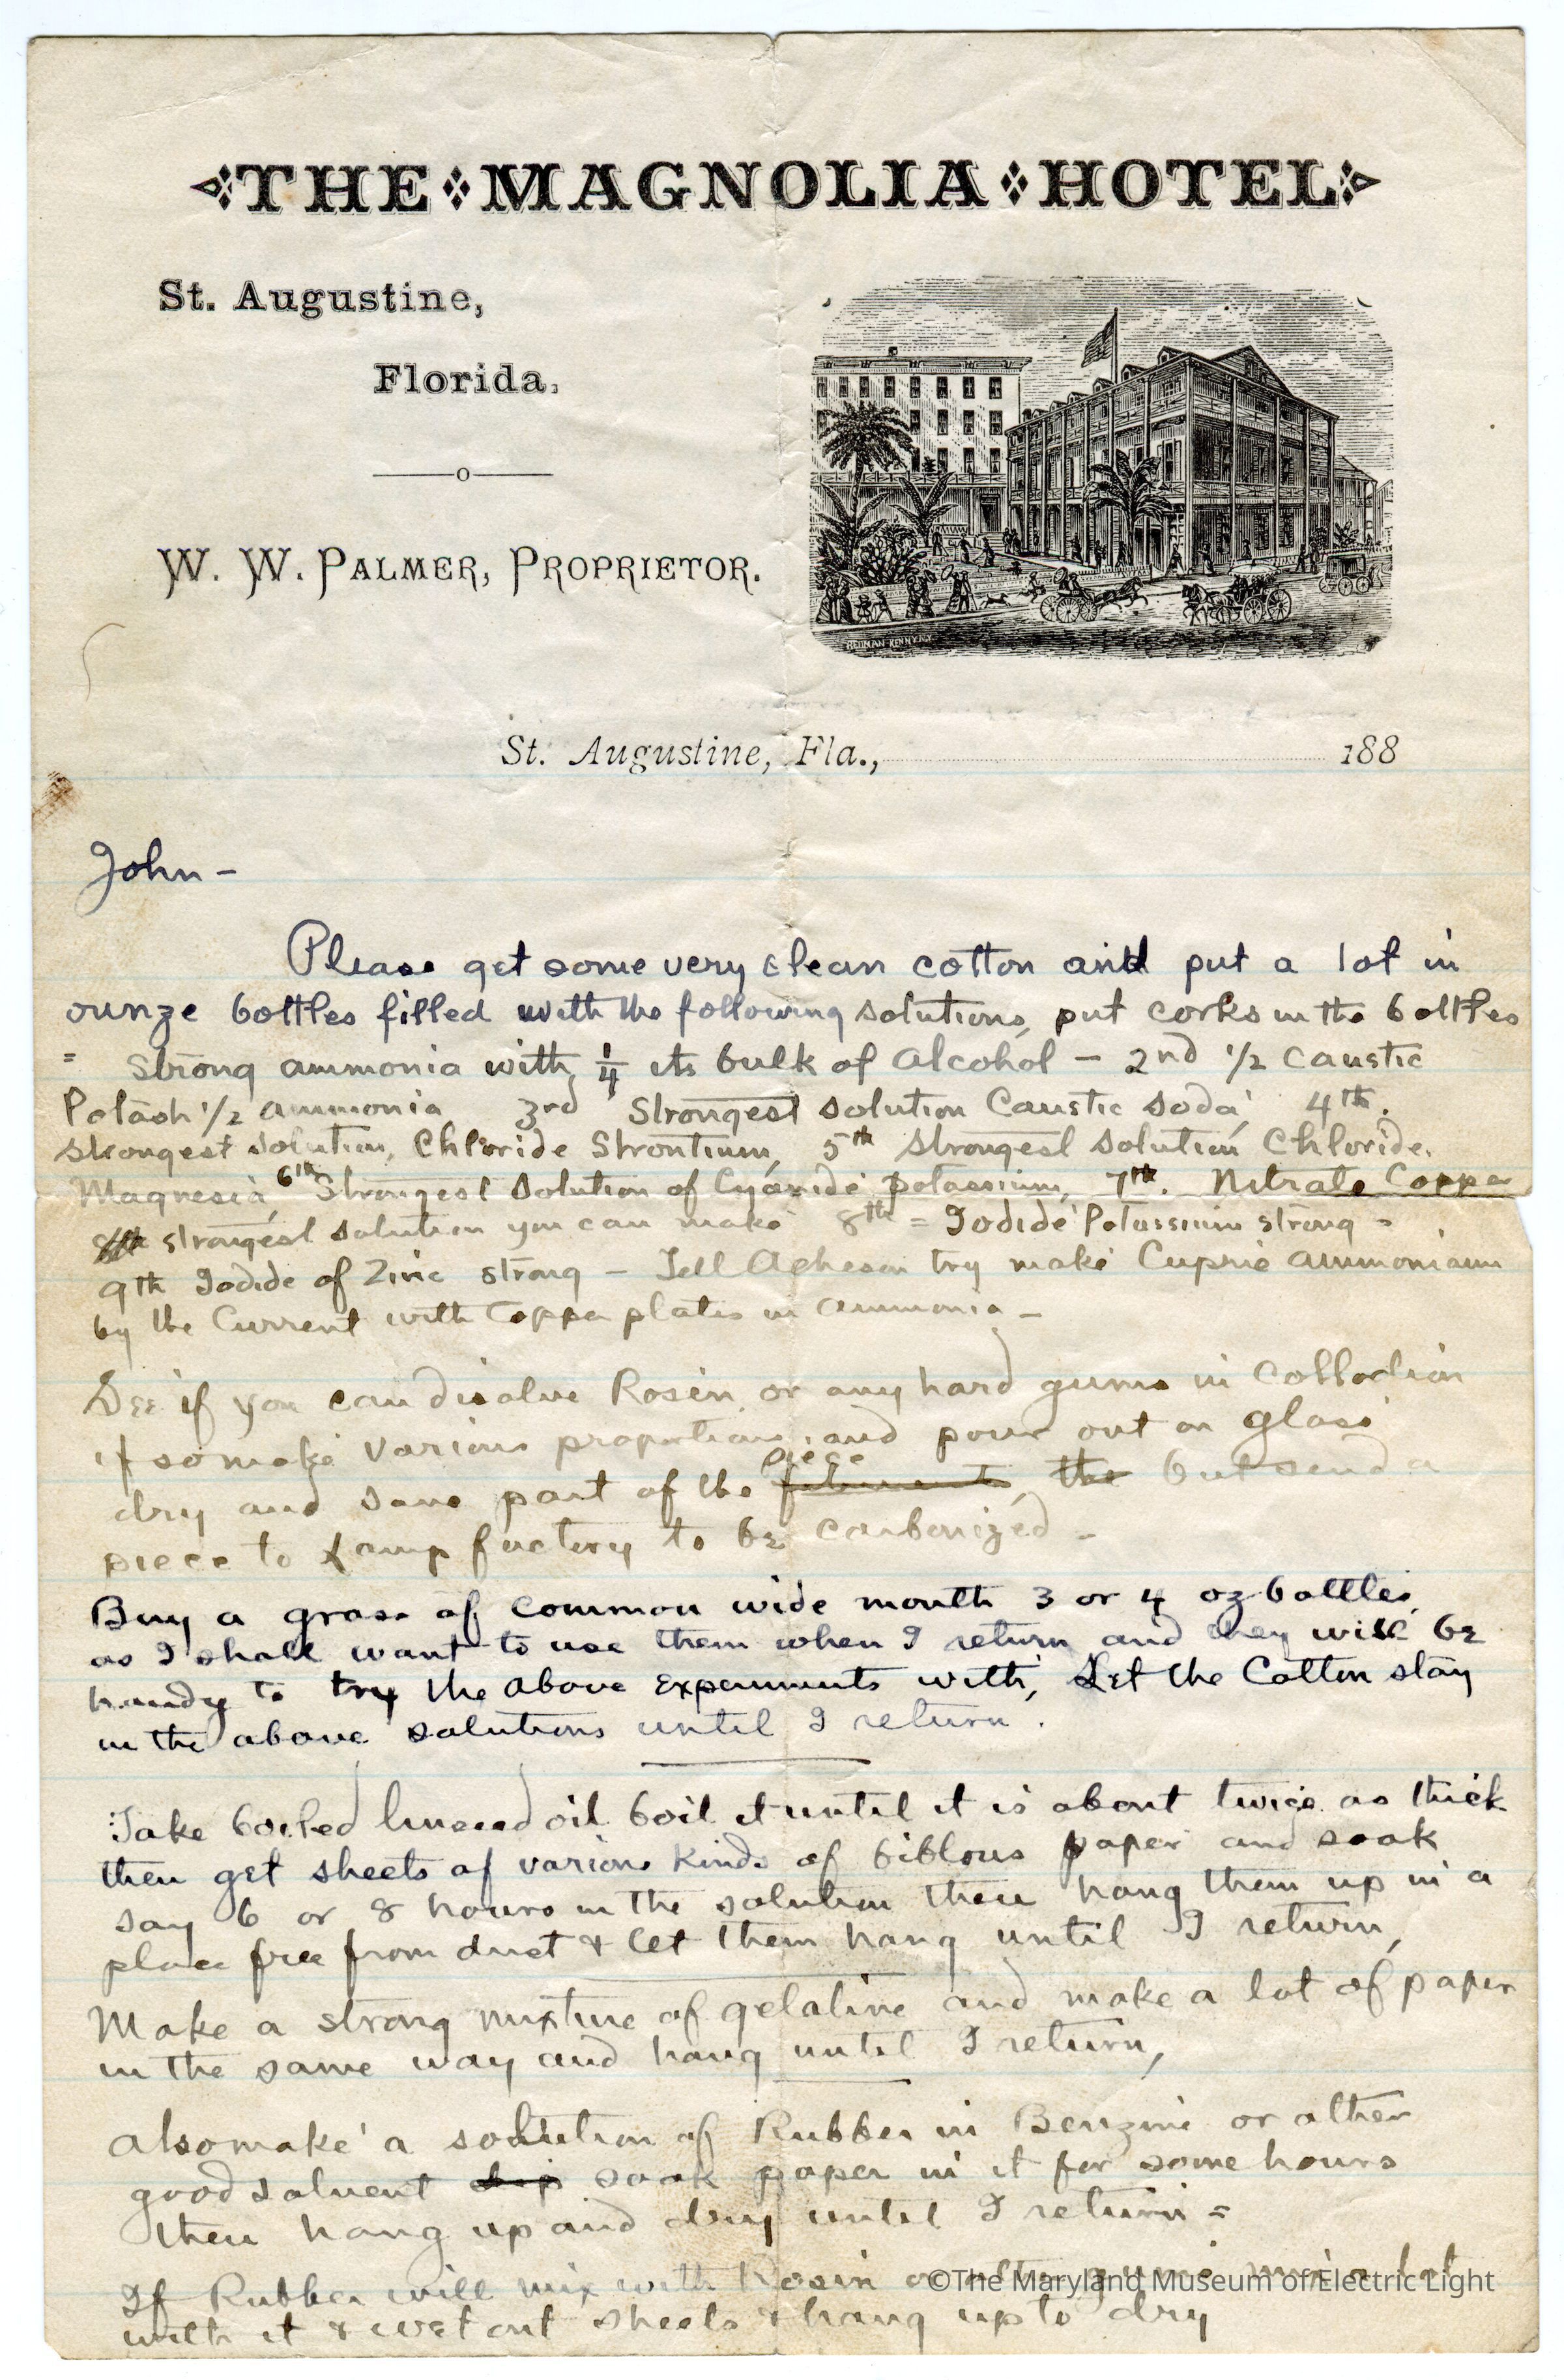 THE MAGNOLIA HOTEL
St. Augustine,
Florida.
o
W. W. PALMER, PROPRIETOR.
HEDMAN KENNY N.Y.
St. Augustine, Fla., 188
John -
Please get some very clean cotton and put a lot in
ounze bottles filled with the following solutions, put corks in the bottles
= Strong ammonia with 1/4 its bulk of Alcohol - 2nd 1/2 Caustic
Potash 1/2 ammonia 3rd Strongest solution Caustic Soda, 4th.
strongest solution, Chloride Strontium, 5th strongest solution Chloride.
Magnesia, 6th Strongest solution of Cyanide potassium, 7th. Nitrate Copper
8th strongest solution you can make 8th = Iodide Potassium strong =
9th Iodide of Zinc strong - Tell Acheson try make Cupric ammonium
by the Current with Copper plates in ammonia -
See if you can disolve Rosin or any hard gums in Collodion
if so make various proportions, and pour out on glass
dry and save part of the filaments piece the but send a
piece to Lamp factory to be carbonized -
Buy a gross of common wide mouth 3 or 4 oz bottles,
as I shall want to use them when I return and they will be
handy to try the above experiments with, Let the Cotton stay
in the above solutions until I return.
Take boiled linseed oil boil it until it is about twice as thick
then get sheets of various kinds of biblous paper and soak
say 6 or 8 hours in the solution then hang them up in a
place free from dust & let them hang until I return,
Make a strong mixture of gelatine and make a lot of paper
in the same way and hang until I return,
Also make a solution of Rubber in Benzine or other
good solvent dip soak paper in it for some hours
then hang up and dry until I return =
If Rubber will mix with Rosin or other gums mix a lot
with it & wet out sheets & hang up to dry
©The Maryland Museum of Electric Light